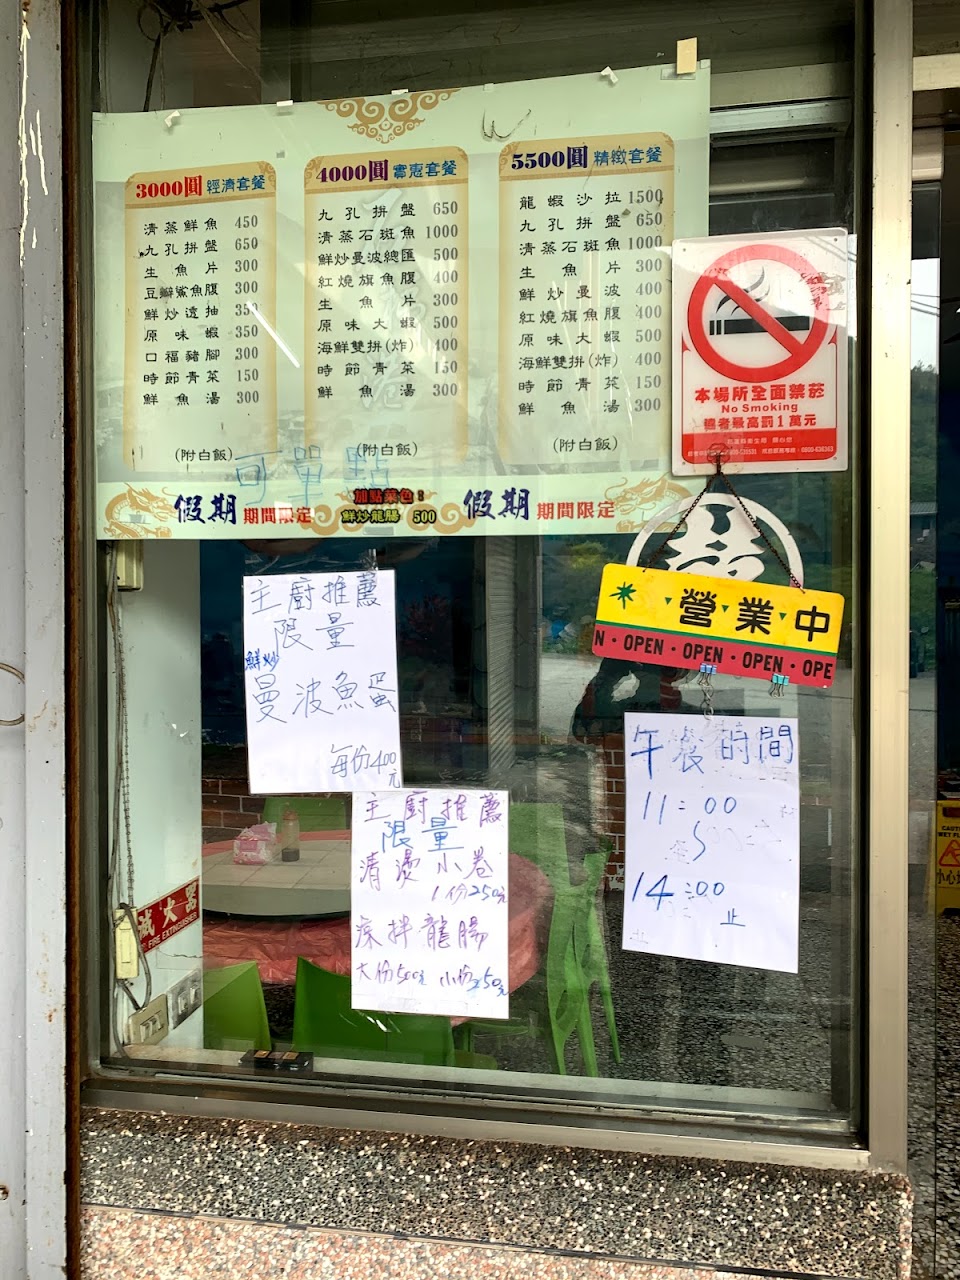 3000圓 經濟套餐
清蒸鮮魚 450
九孔拼盤 650
生魚片 300
豆瓣鯊魚腹 300
鮮炒透抽 350
原味蝦 350
口福豬腳 300
時節青菜 150
鮮魚湯 300
(附白飯)
4000圓 實惠套餐
九孔拼盤 650
清蒸石斑魚 1000
鮮炒曼波總匯 500
紅燒旗魚腹 400
生魚片 300
原味大蝦 500
海鮮雙拼(炸) 400
時節青菜 150
鮮魚湯 300
(附白飯)
5500圓 精緻套餐
龍蝦沙拉 1500
九孔拼盤 650
清蒸石斑魚 1000
生魚片 300
鮮炒曼波 400
紅燒旗魚腹 400
原味大蝦 500
海鮮雙拼(炸) 400
時節青菜 150
鮮魚湯 300
(附白飯)
可單點
假期 期間限定
加點菜色:
鮮炒龍腸 500
假期 期間限定
本場所全面禁菸
No Smoking
違者最高罰1萬元
營業中
N・OPEN・OPEN・OPEN・OPE
主廚推薦
限量
鮮炒
曼波魚蛋
每份400元
主廚推薦
限量
清燙小卷
1份250元
涼拌龍腸
大份500元 小份250元
午餐時間
11:00
14:00
止
滅火器
FIRE EXTINGUISHER
小心